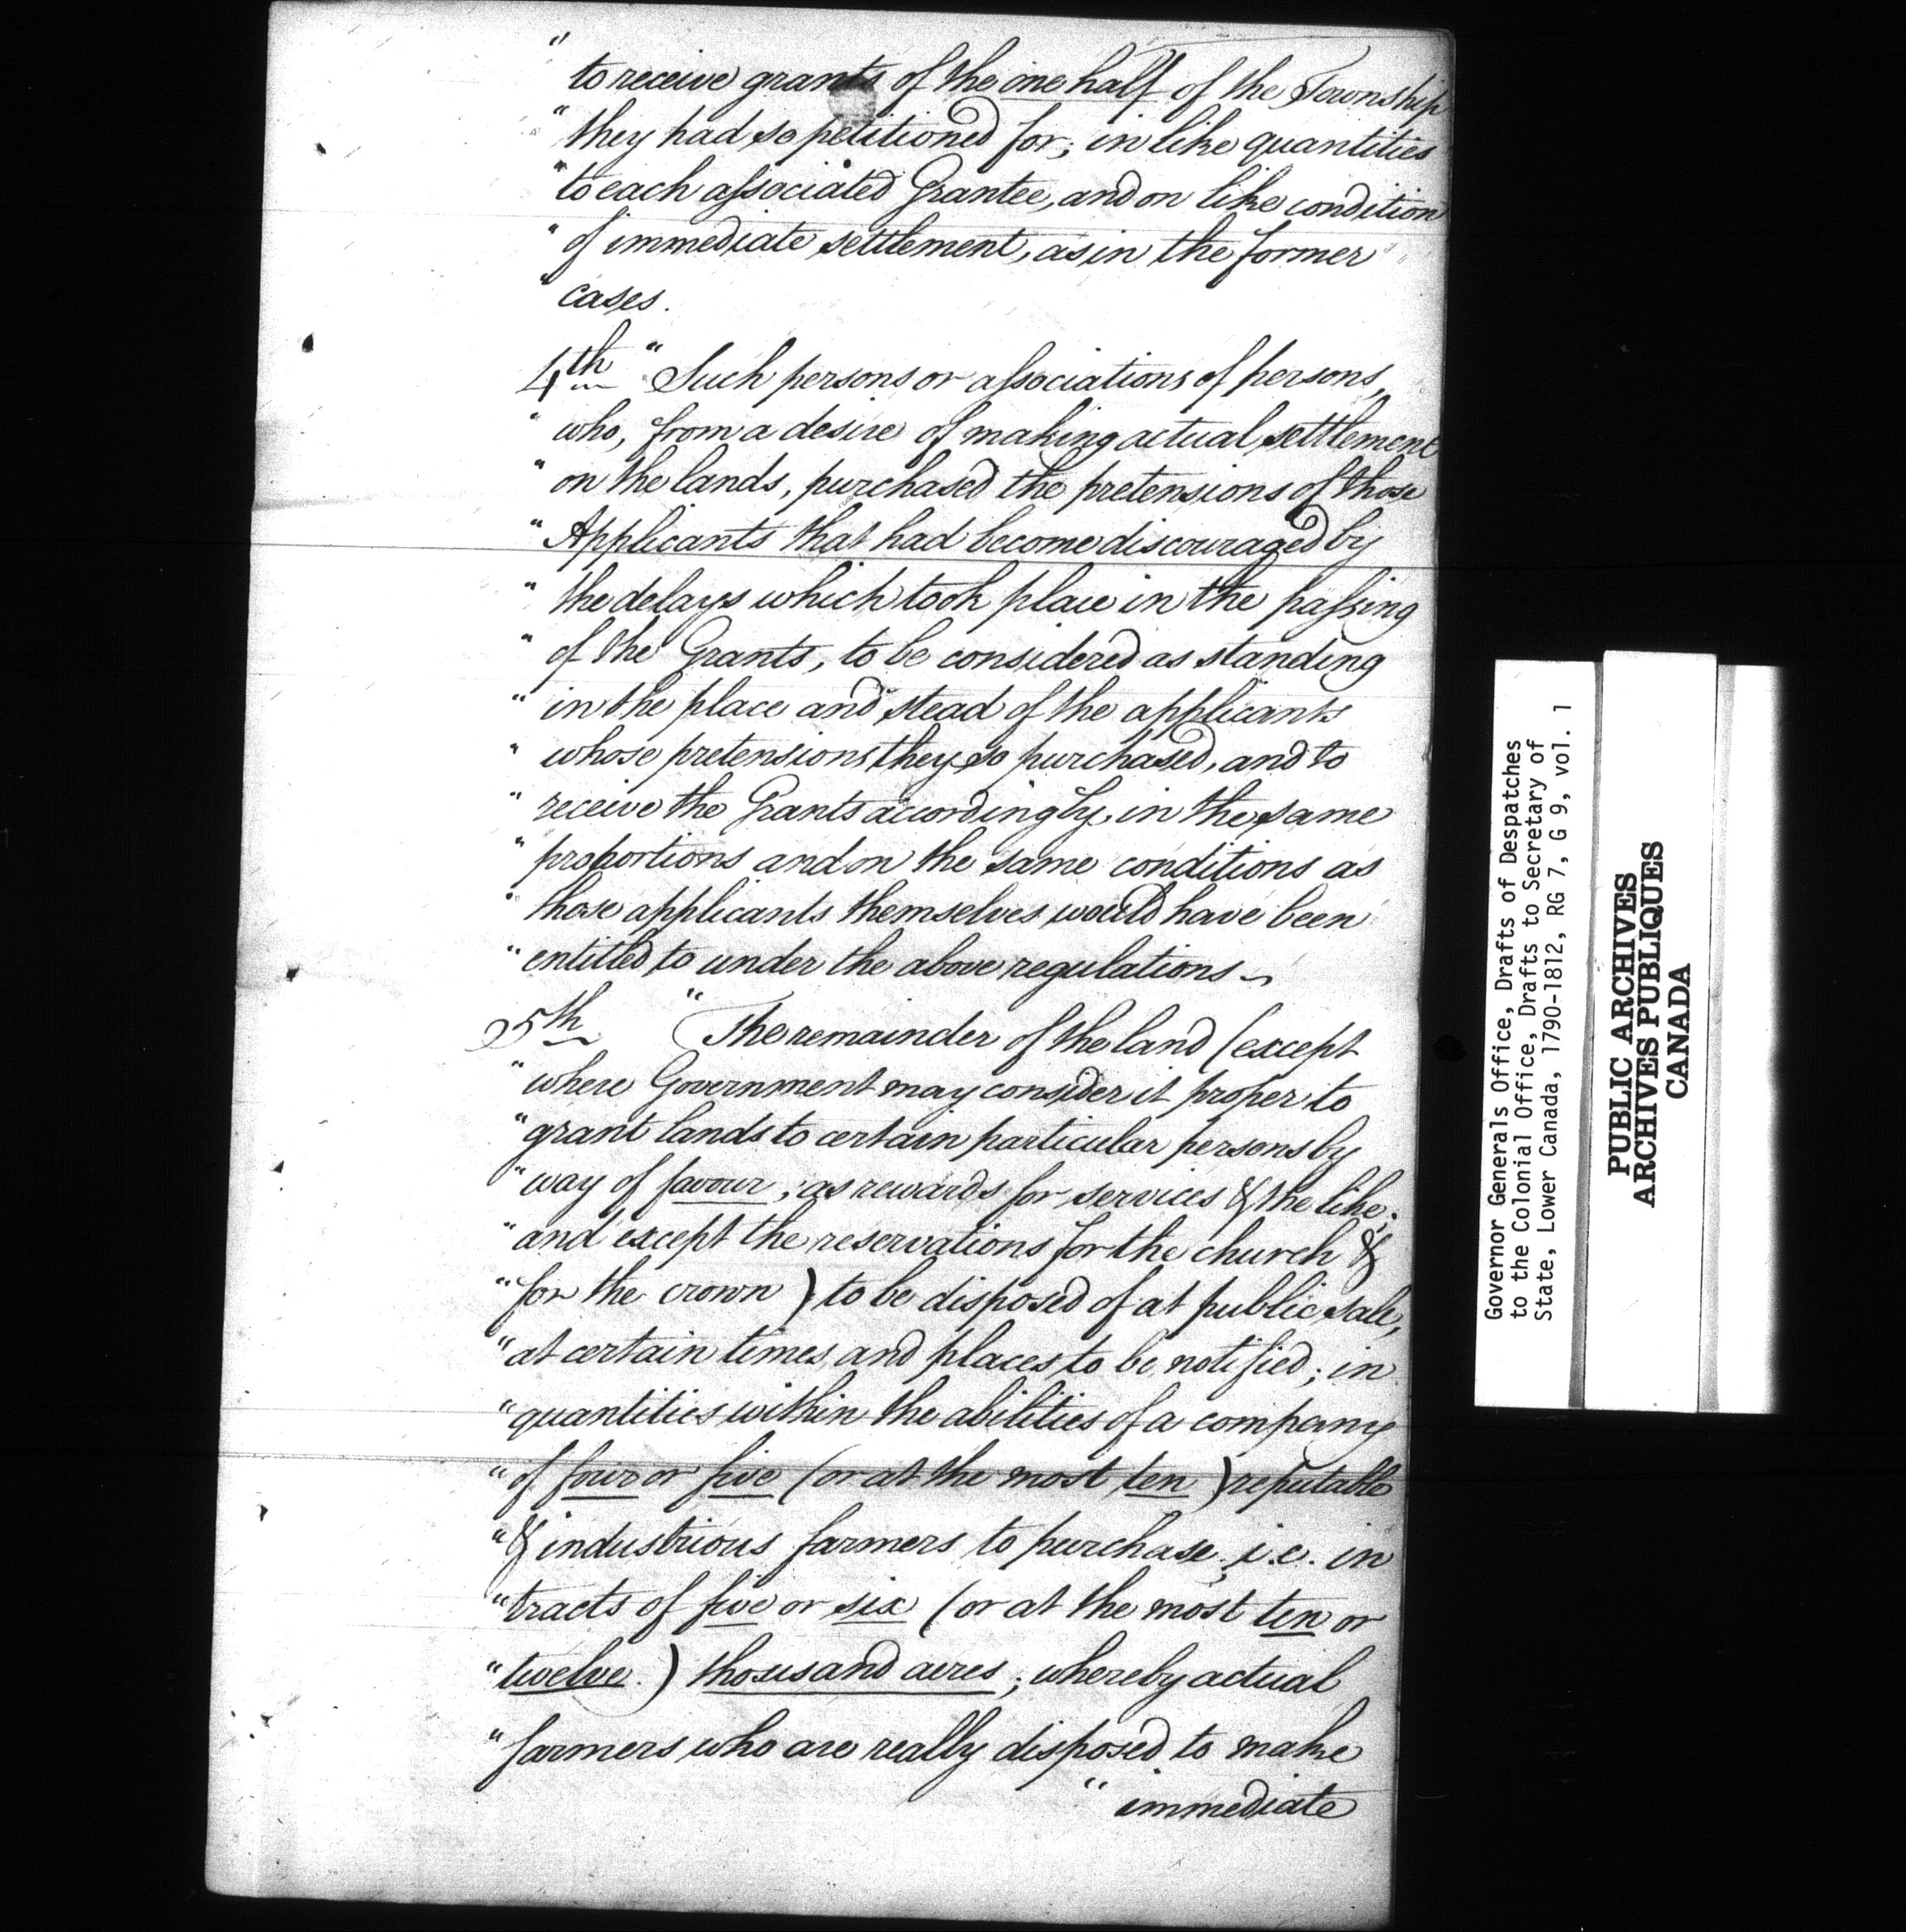 " to receive grants of the one half of the Township
" they had so petitioned for; in like quantities
" to each associated Grantee, and on like condition
" of immediate settlement, as in the former
" cases.
4th " Such persons or associations of persons,
" who, from a desire of making actual settlement
" on the lands, purchased the pretensions of those
" Applicants that had become discouraged by
" the delays which took place in the passing
" of the Grants, to be considered as standing
" in the place and stead of the applicants
" whose pretensions they so purchased, and to
" receive the Grants accordingly, in the same
" proportions and on the same conditions as
" those applicants themselves would have been
" entitled to under the above regulations ~
5th " The remainder of the land (except
" where Government may consider it proper to
" grant lands to certain particular persons by
" way of favour, as rewards for services & the like;
" and except the reservations for the church &
" for the crown) to be disposed of at public sale,
" at certain times and places to be notified; in
" quantities within the abilities of a company
" of four or five (or at the most ten) reputable
" & industrious farmers to purchase, i.e. in
" tracts of five or six (or at the most ten or
" twelve) thousand acres; whereby actual
" farmers who are really disposed to make
" immediate
Governor Generals Office, Drafts of Despatches
to the Colonial Office, Drafts to Secretary of
State, Lower Canada, 1790-1812, RG 7, G 9, vol. 1
PUBLIC ARCHIVES
ARCHIVES PUBLIQUES
CANADA